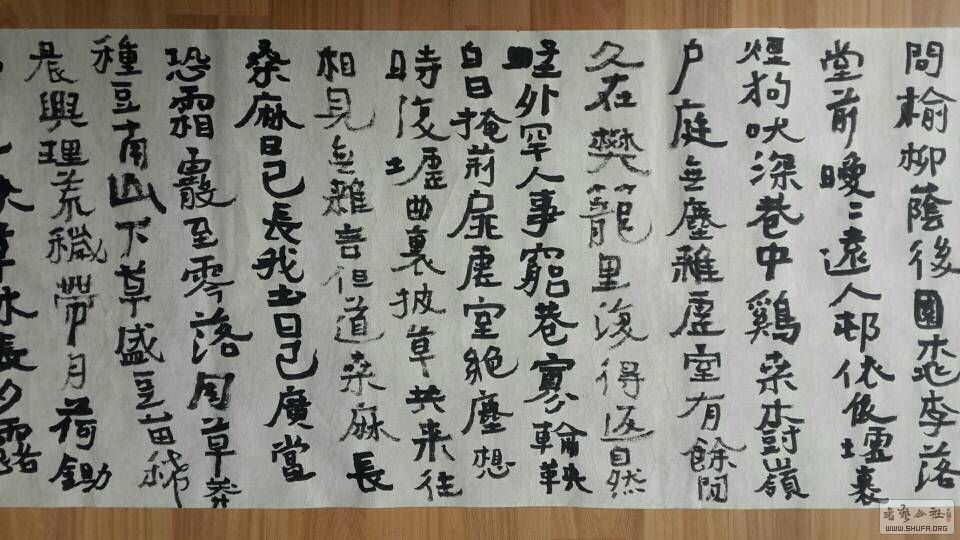 間榆柳蔭後園桃李落
堂前曖二遠人邨依依墟裏
煙狗吠深巷中鷄桑樹嶺
户庭无塵雜虛室有餘閒
久在樊籠里復得返自然
野外罕人事窮巷寡輪鞅
白日掩荊扉虛室絕塵想
時復墟曲裏披草共来往
相見无雜言但道桑麻長
桑麻日已長我土日已廣當
恐霜霰至零落同草莽
種豆南山下草盛豆苗稀
晨興理荒穢帶月荷鋤
草木長夕露
書藝公社
WWW.SHUFA.ORG